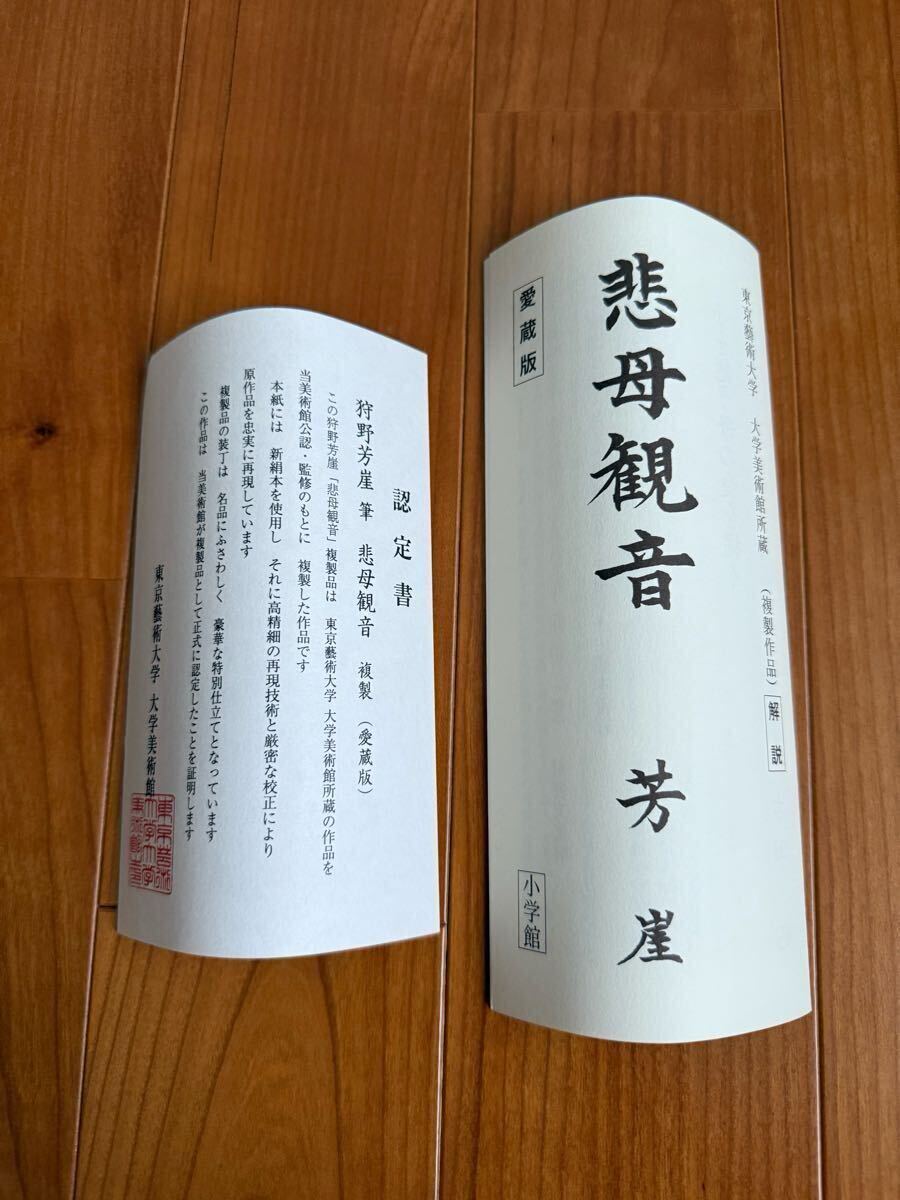 認定書
狩野芳崖 筆 悲母観音 複製 (愛蔵版)
この狩野芳崖「悲母観音」複製品は 東京藝術大学 大学美術館所蔵の作品を
当美術館公認・監修のもとに 複製した作品です
本紙には 新絹本を使用し それに高精細の再現技術と厳密な校正により
原作品を忠実に再現しています
複製品の装丁は 名品にふさわしく 豪華な特別仕立てとなっています
この作品は 当美術館が複製品として正式に認定したことを証明します
東京藝術大学 大学美術館
東京藝術大学 大学美術館所蔵 (複製作品) 解説
悲母観音 芳崖
愛蔵版
小学館